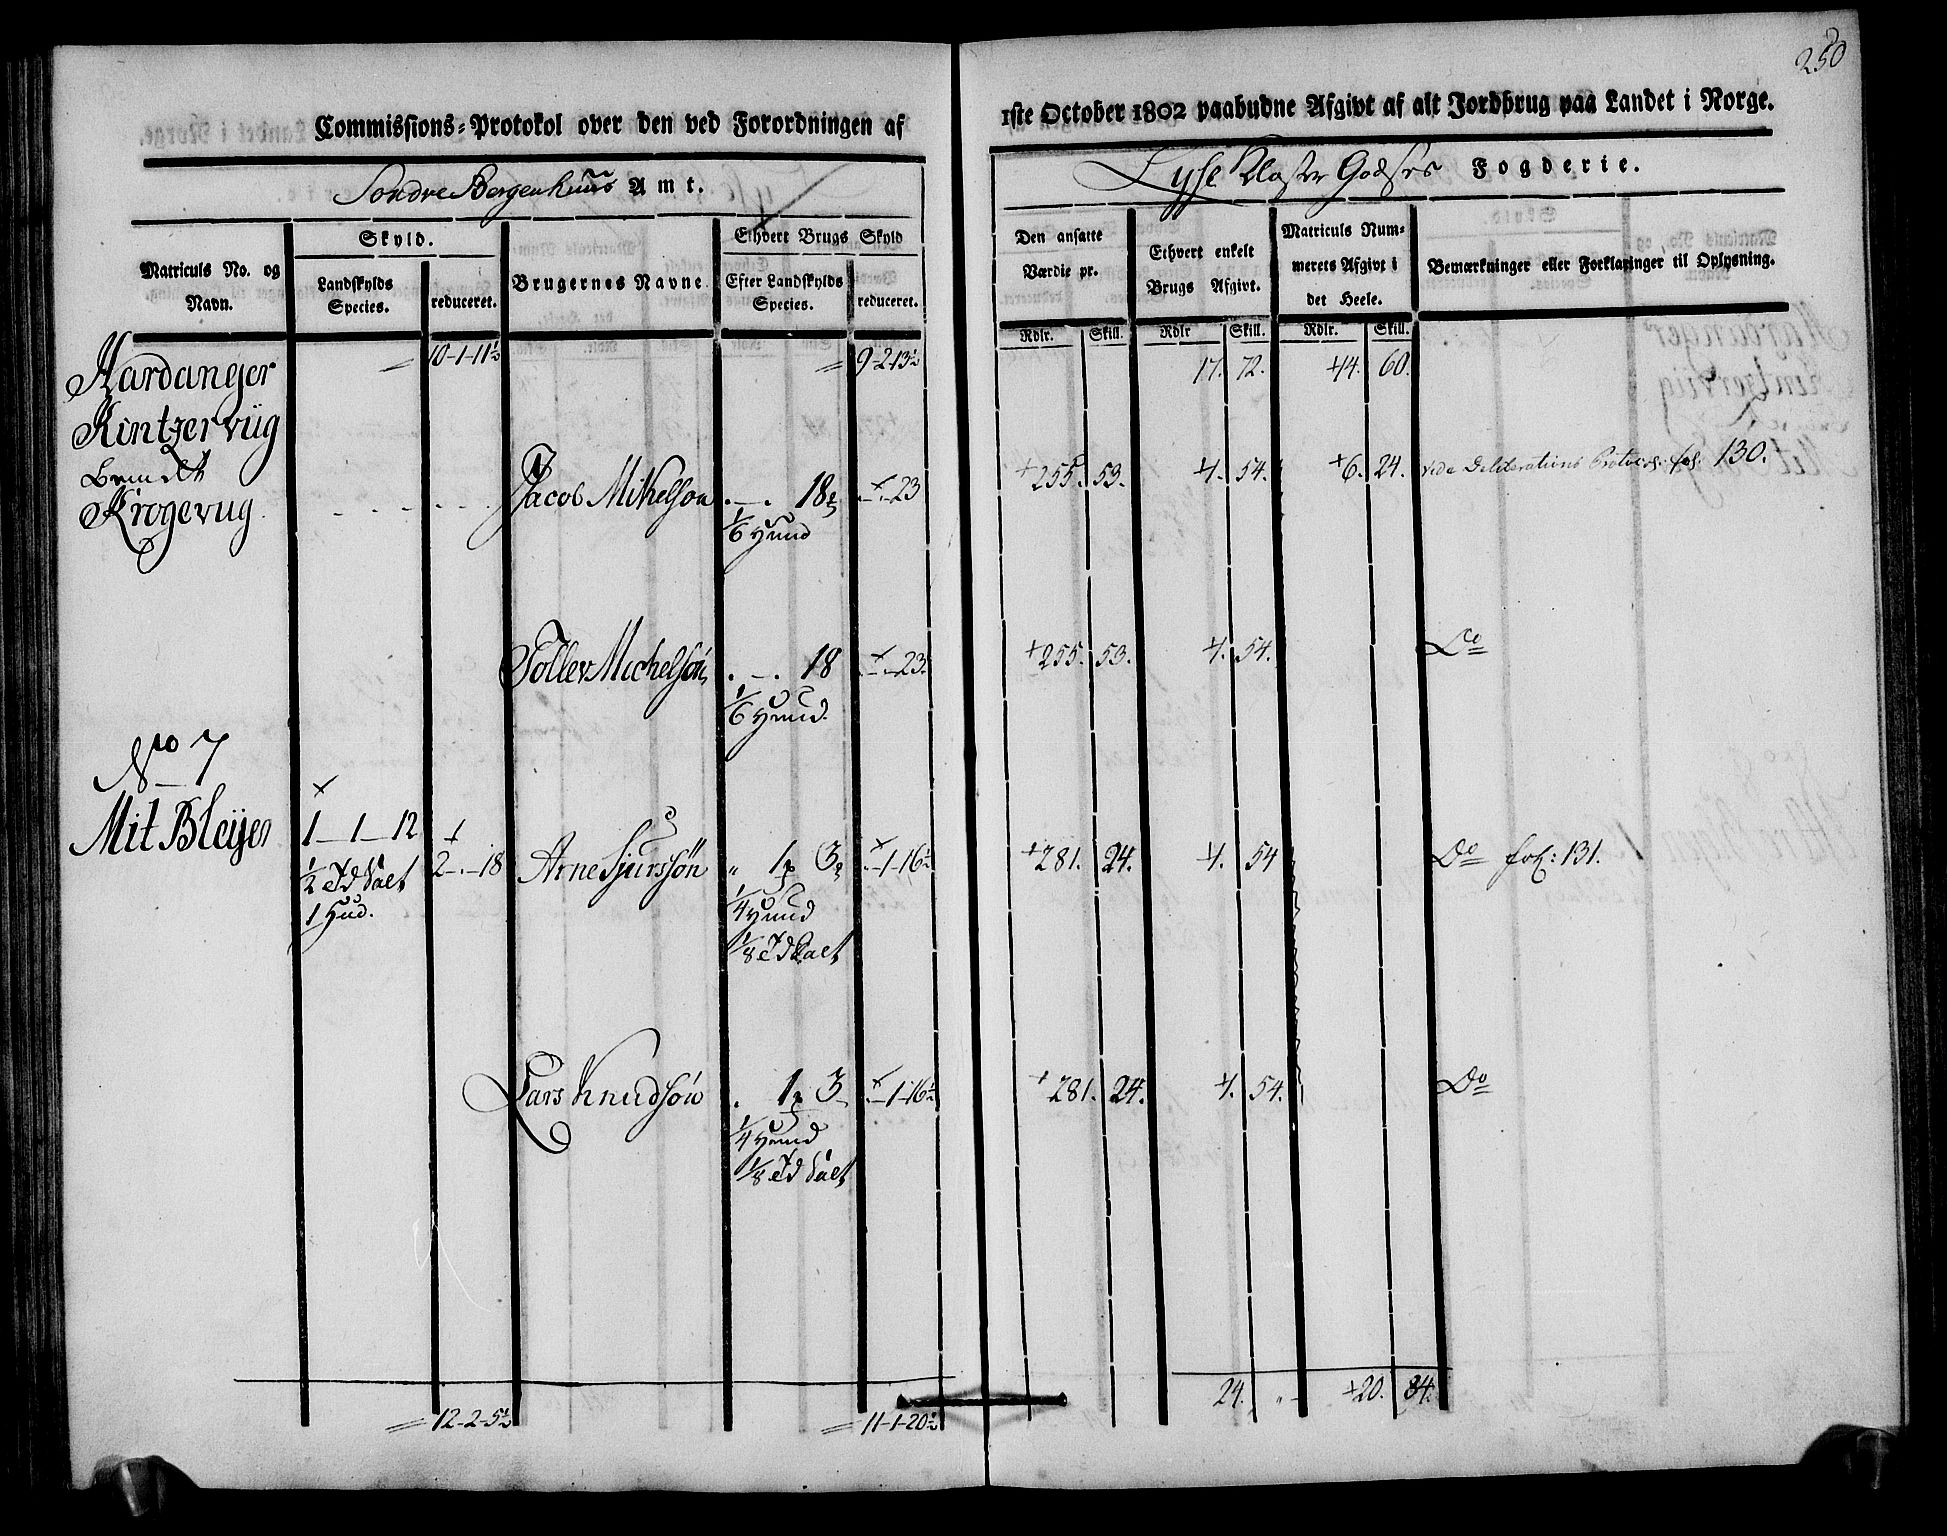 250
Commissions-Protokol over den ved Forordningen af
1ste October 1802 paabudne Afgivt af alt Jordbrug paa Landet i Norge.
Søndre Bergenhuus Amt.
Lyse Kloster Godses Fogderie.
Matriculs No. og Navn.
Skyld.
Landskylds Species.
reduceret.
Brugernes Navne
Ethvert Brugs Skyld
Efter Landskylds Species.
reduceret.
Den ansatte Værdie pr.
Ethvert enkelt Brugs Afgivt.
Matriculs Nummerets Afgivt i det Heele.
Bemærkninger eller Forklaringer til Oplysning.
Rdlr. Skill. Rdlr Skill. Rdlr. Skill.
Hardanger = 10-1-11½ = 9-2-13½ 17. 72. 44. 60.
Kintzerviig
Krogevug Jacob Mikelson .-. 18 .-.-23 255. 53. 4. 54. 6. 24. vide Deliberations Protoc: fol: 130.
1/6 Huud
Toller Michelsøn .-. 18 .-.-23. 255. 53. 4. 54. Do
1/6 Huud.
No 7
Mit Bleyen 1-1-12 2-.-18 Arne Sjurssøn " 1 p 3 .-1-16½ 281. 24. 4. 54 Do fol: 131.
½ Td Salt ¼ Huud
1 Hud. 1/8 Td Salt
Lars Knudsøn . 1 p 3 .-1-16½ 281. 24. 4. 54. Do
¼ Huud
1/8 Td Salt
= 12-2-5½ = 11-1-20½ 24. " 20. 34.